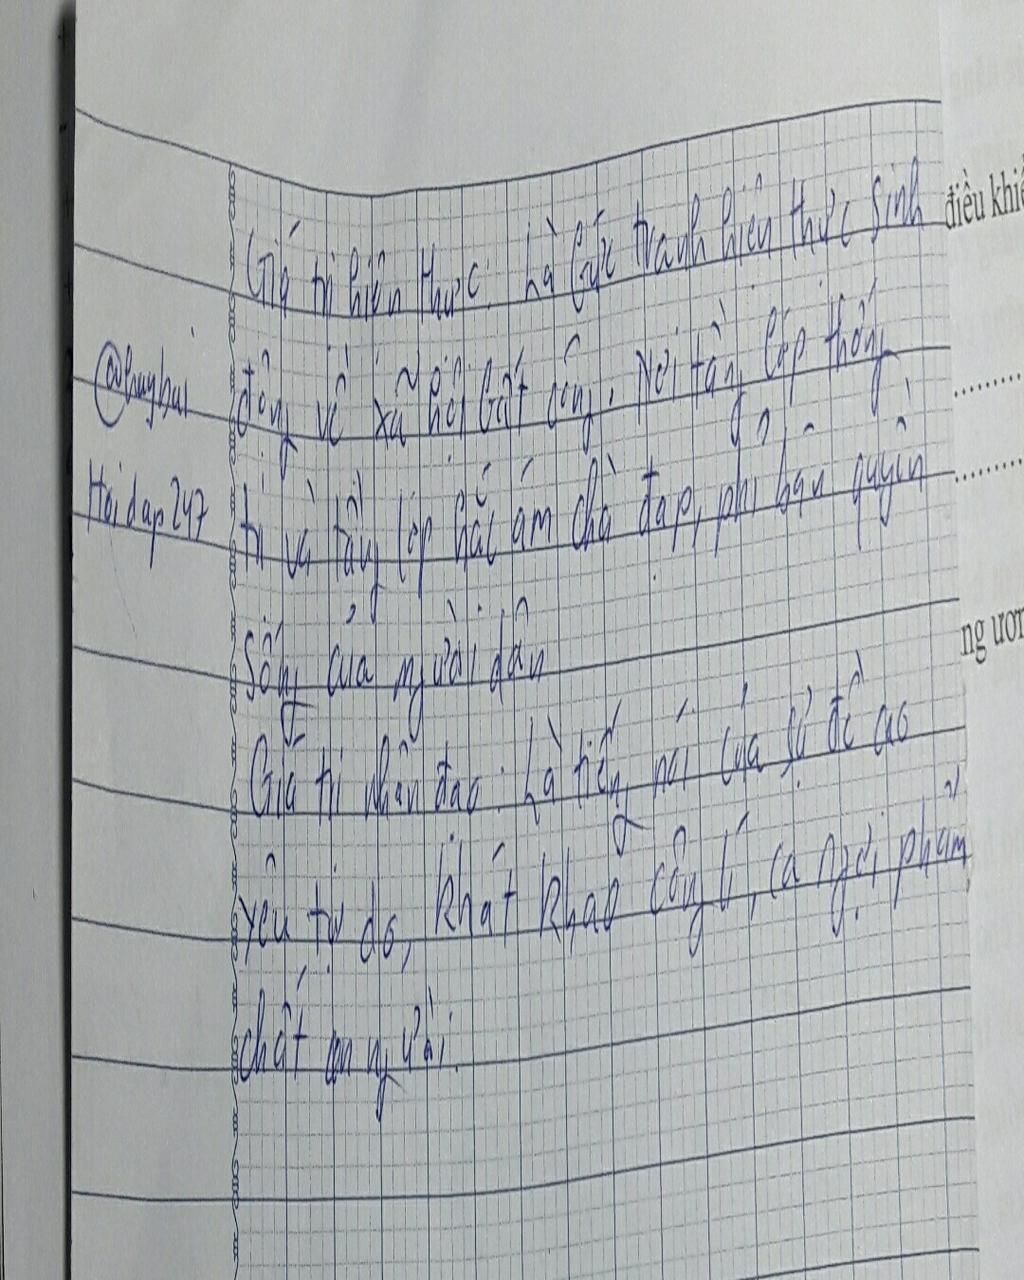 Giá trị hiện thực: Là bức tranh hiện thực sinh
động về xã hội bất công. Nơi tầng lớp thống
trị và tầng lớp hắc ám chà đạp, phỉ báng quyền
sống của người dân
Giá trị nhân đạo: Là tiếng nói của sự đề cao
yêu tự do, khát khao công lí, ca ngợi phẩm
chất con người.
@huybui
Hoidap247
điều khiể
..........
..........
ng ươn